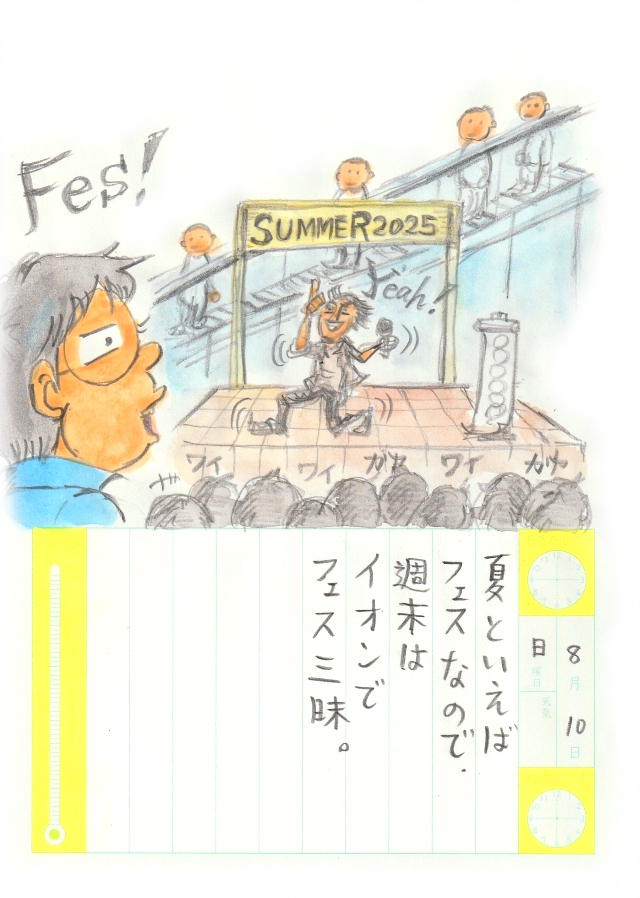 Fes!
SUMMER2025
Yeah!
ワイ
ワイ
ガヤ
ワイ
ガヤ
8月10日
日曜日
天気
夏といえば
フェスなので.
週末は
イオンで
フェス三昧。